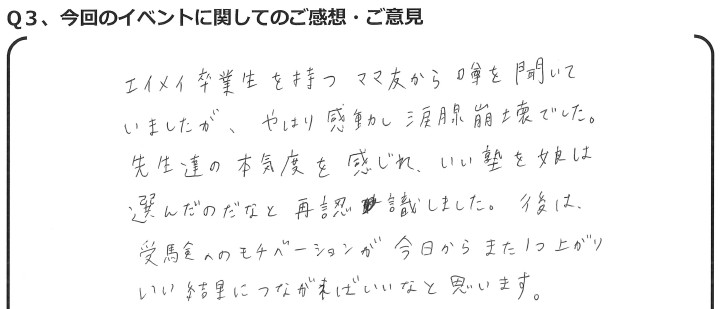 Q3、今回のイベントに関してのご感想・ご意見
エイメイ卒業生を持つママ友から噂を聞いて
いましたが、やはり感動し涙腺崩壊でした。
先生達の本気度を感じれ、いい塾を娘は
選んだのだなと再認識しました。後は、
受験へのモチベーションが今日からまた1つ上がり
いい結果につながればいいなと思います。